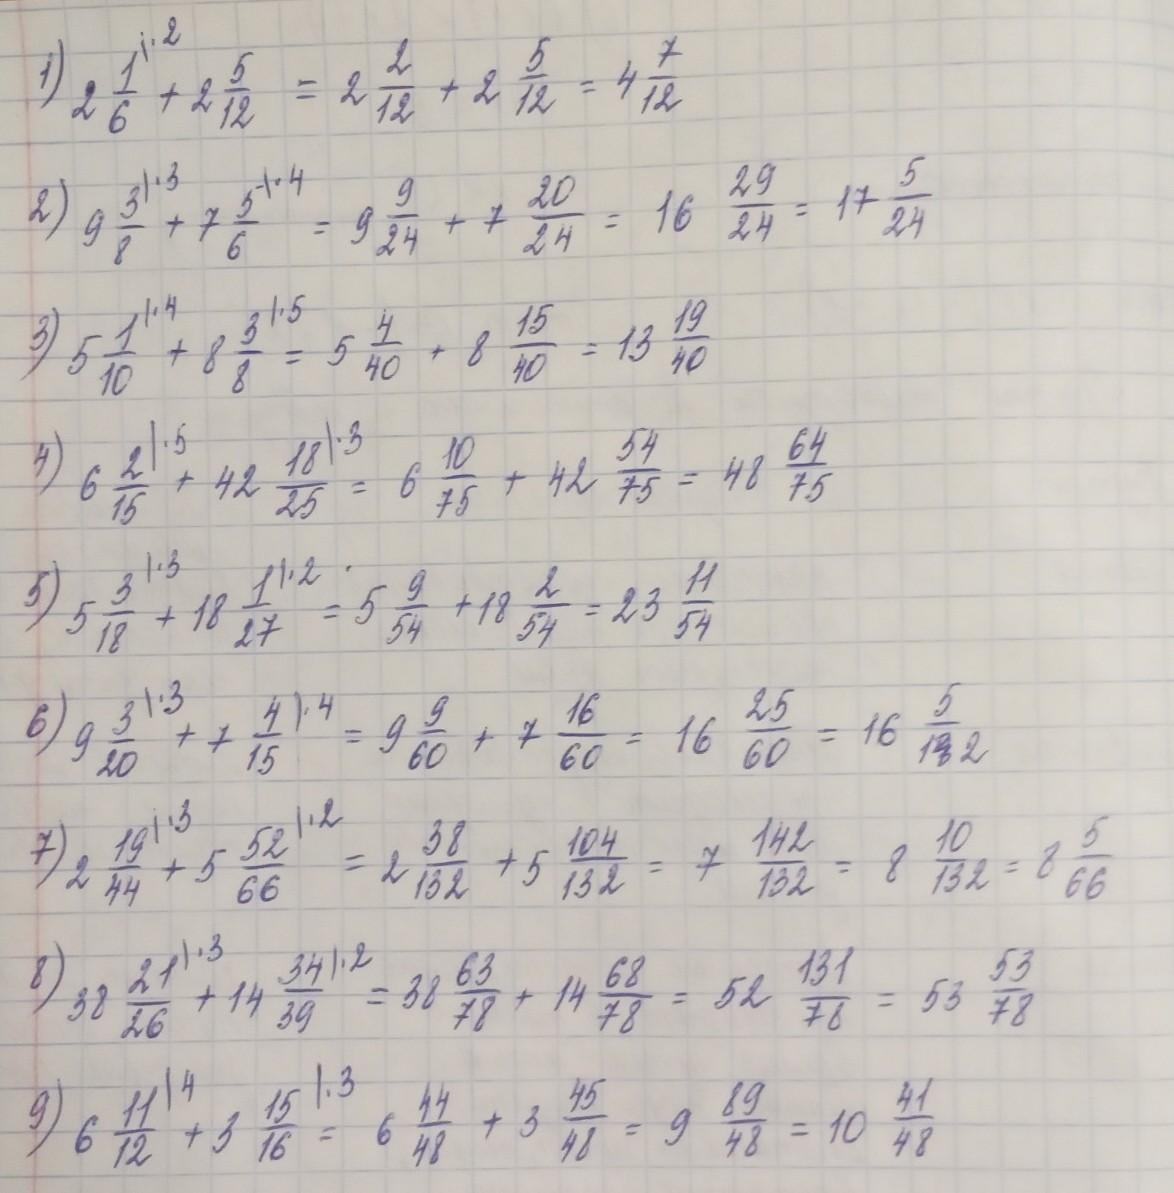 1) 2 1/6 |·2 + 2 5/12 = 2 2/12 + 2 5/12 = 4 7/12
2) 9 3/8 |·3 + 7 5/6 |·4 = 9 9/24 + 7 20/24 = 16 29/24 = 17 5/24
3) 5 1/10 |·4 + 8 3/8 |·5 = 5 4/40 + 8 15/40 = 13 19/40
4) 6 2/15 |·5 + 42 18/25 |·3 = 6 10/75 + 42 54/75 = 48 64/75
5) 5 3/18 |·3 + 18 1/27 |·2 = 5 9/54 + 18 2/54 = 23 11/54
6) 9 3/20 |·3 + 7 4/15 |·4 = 9 9/60 + 7 16/60 = 16 25/60 = 16 5/12
7) 2 19/44 |·3 + 5 52/66 |·2 = 2 38/132 + 5 104/132 = 7 142/132 = 8 10/132 = 8 5/66
8) 38 21/26 |·3 + 14 34/39 |·2 = 38 63/78 + 14 68/78 = 52 131/78 = 53 53/78
9) 6 11/12 |4 + 3 15/16 |·3 = 6 44/48 + 3 45/48 = 9 89/48 = 10 41/48